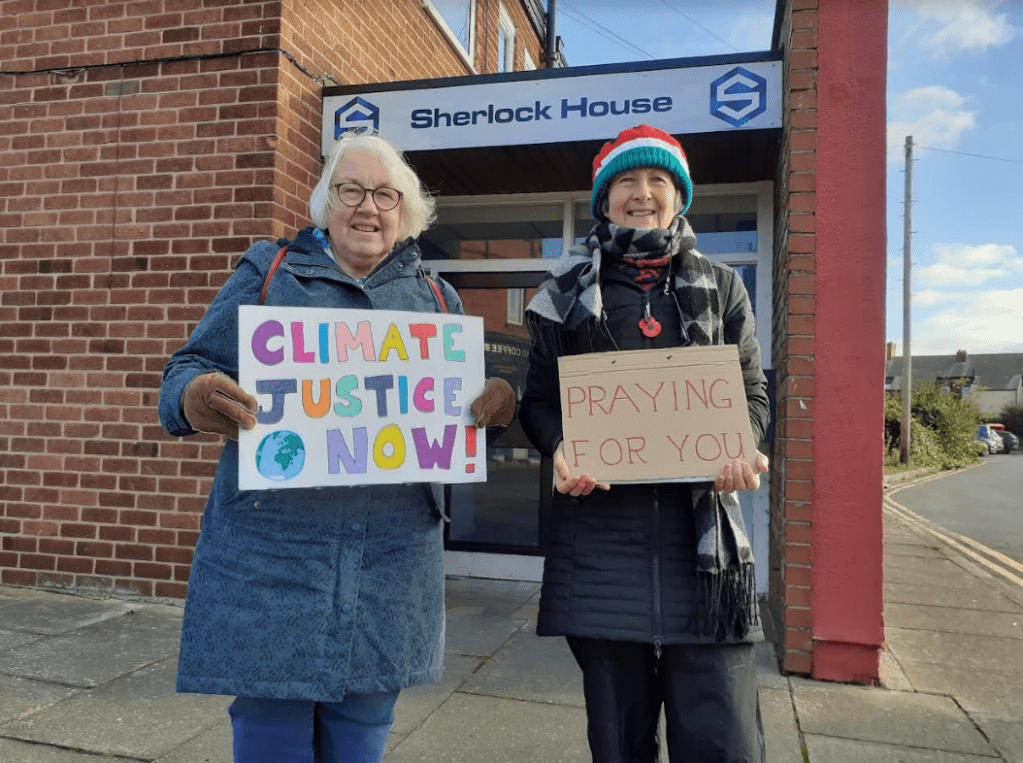 Sherlock House
CLIMATE
JUSTICE
NOW!
PRAYING
FOR YOU
COFFEE